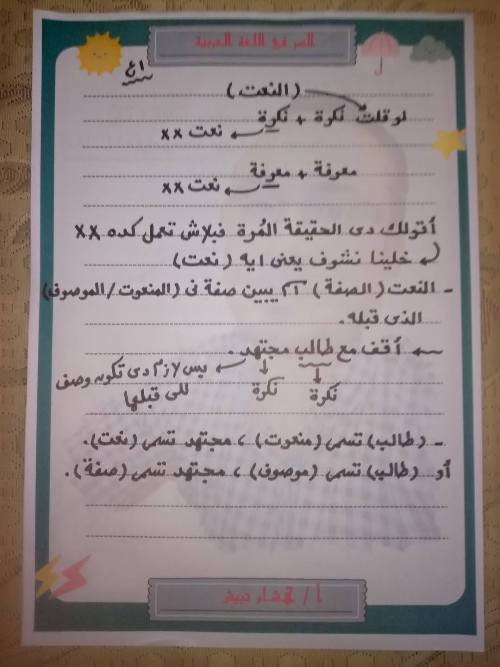 السر في اللغة العربية
(النعت)
لو قلت نكرة + نكرة
نعت xx
معرفة + معرفة
نعت xx
أقولك دى الحقيقة المُرة فبلاش تعمل كده xx
خلينا نشوف يعنى ايه (نعت)
- النعت (الصفة) يبين صفة فى (المنعوت/الموصوف)
الذى قبله.
أقف مع طالب مجتهد.
بس لازم دى تكون وصف
نكرة نكرة
للى قبلها
- (طالب) تسمى (منعوت)، مجتهد تسمى (نعت).
أو (طالب) تسمى (موصوف)، مجتهد تسمى (صفة).